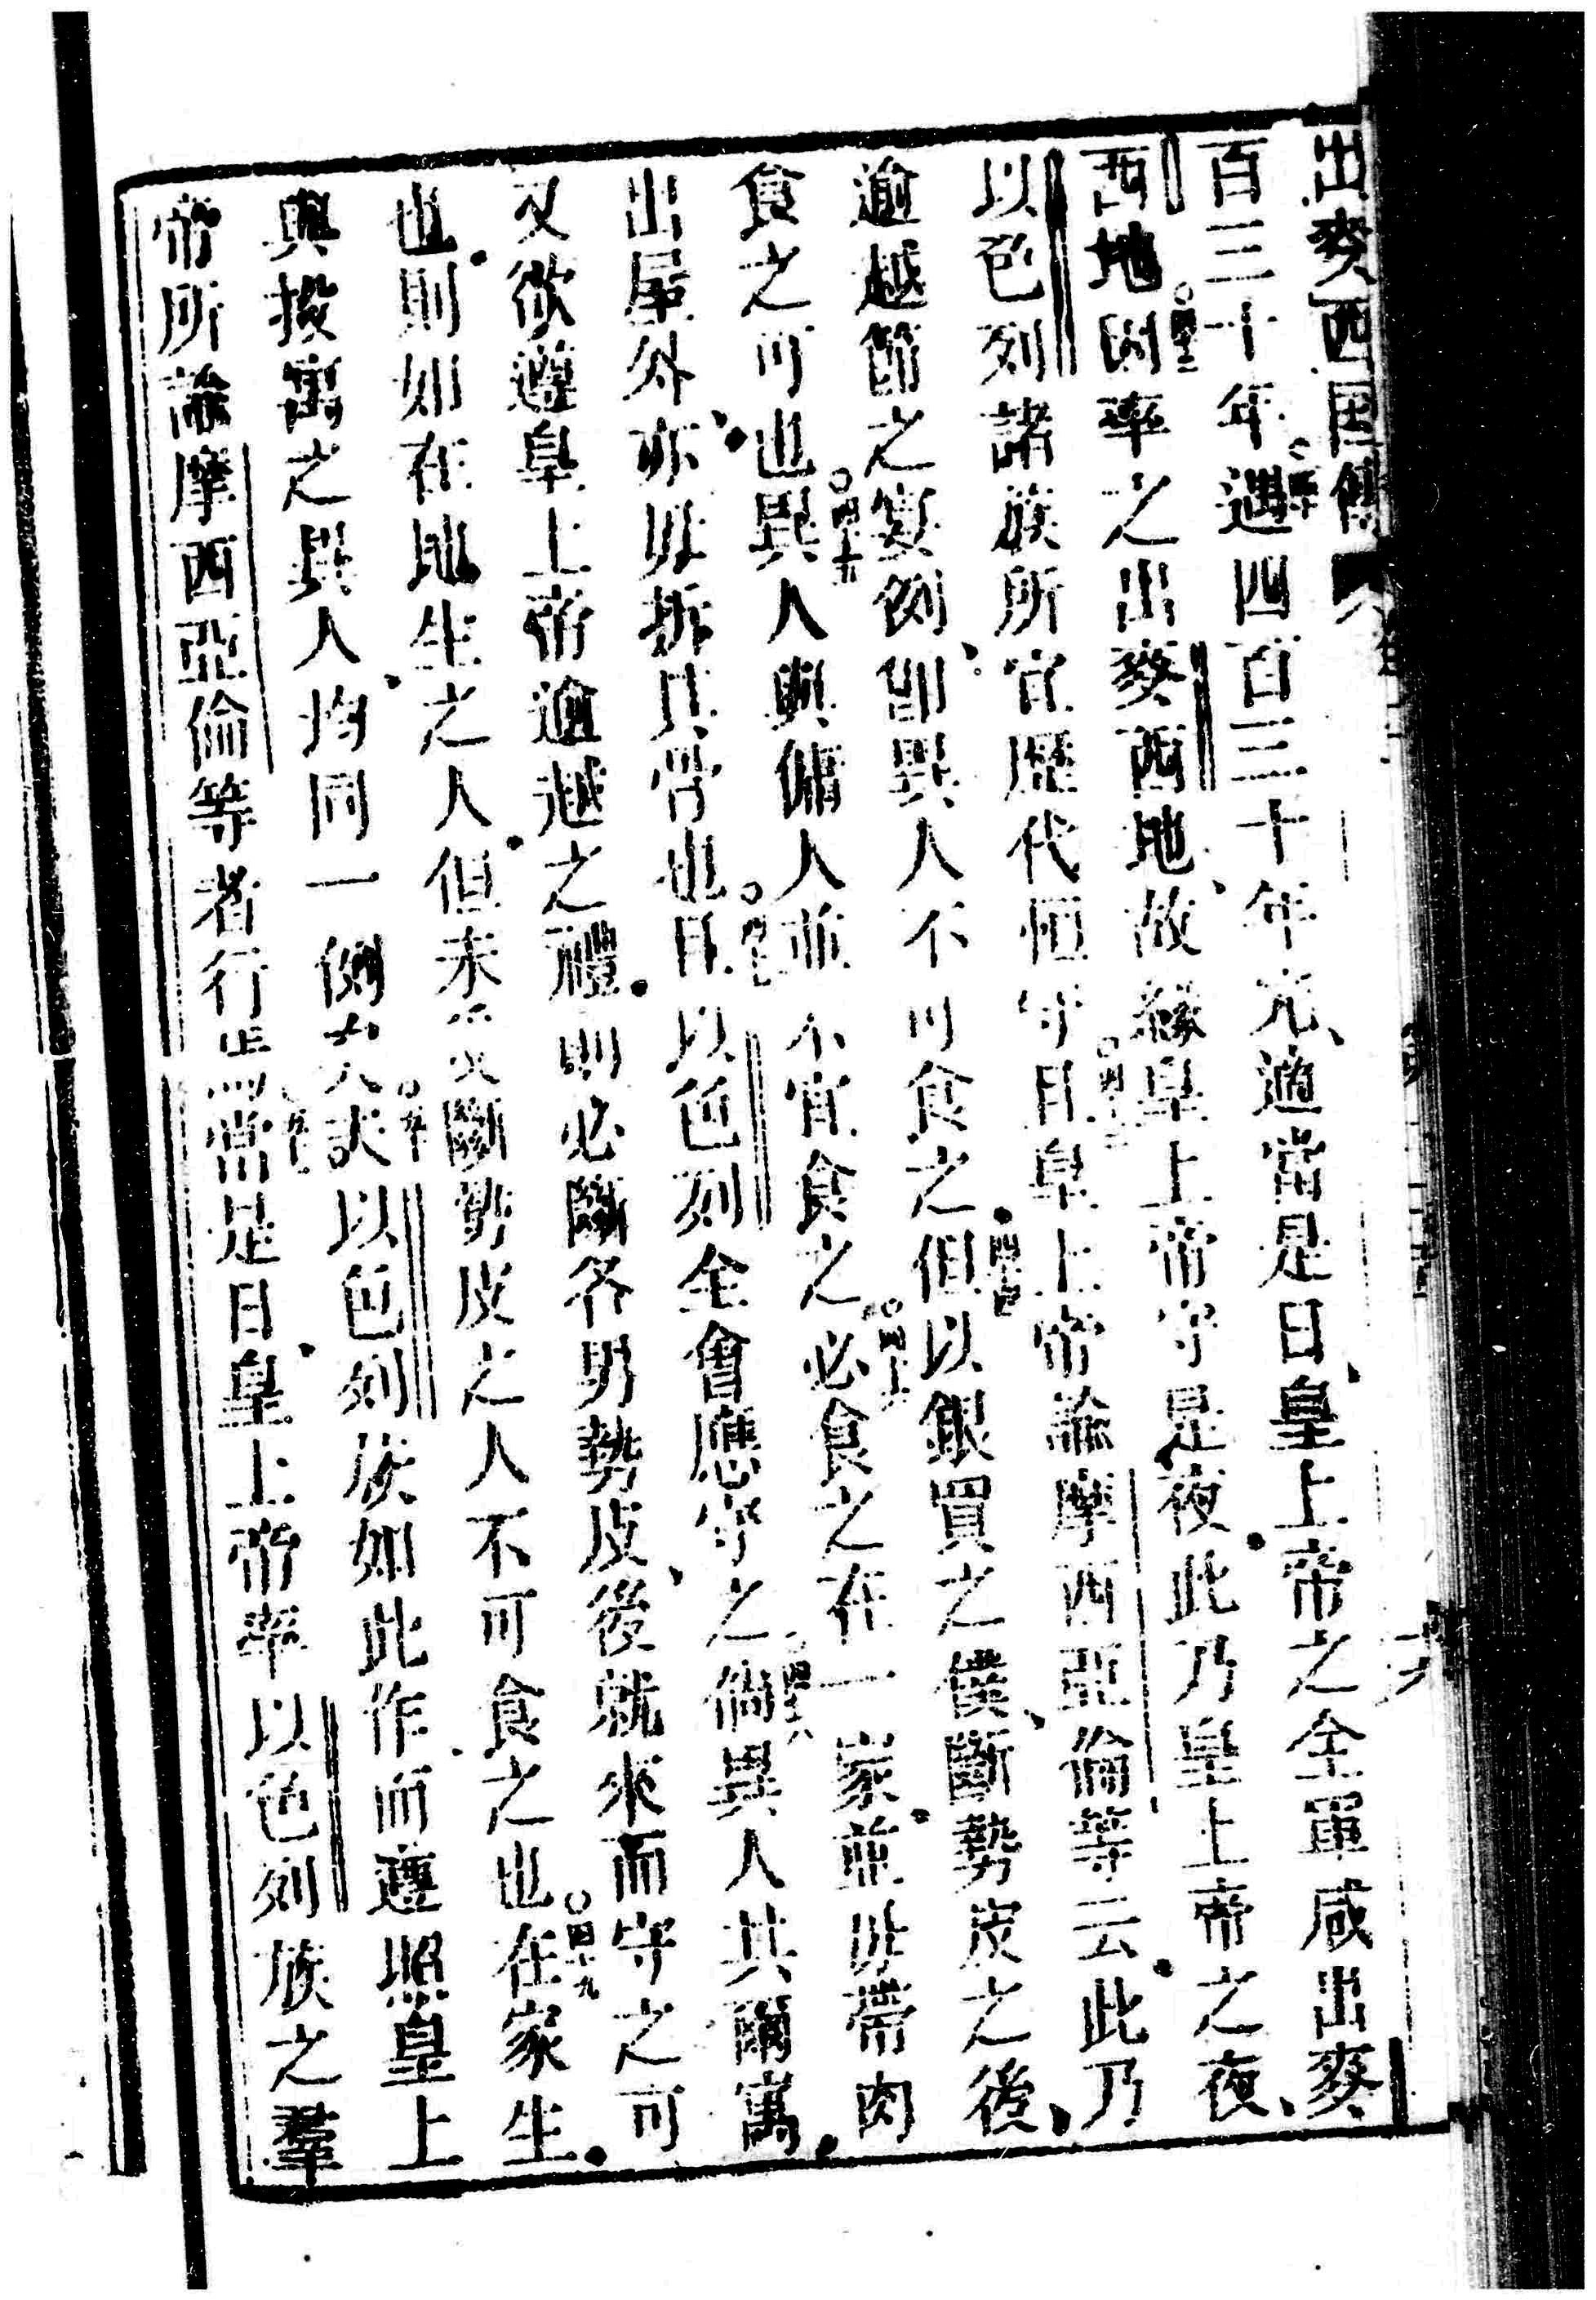 出麥西國傳
百三十年遇四百三十年完、適當是日、皇上帝之全軍咸出麥
西地○四十二因率之出麥西地、故緣皇上帝守是夜此乃皇上帝之夜、
以色列諸族所宜歷代恒守○四十三且皇上帝諭摩西亞倫等云此乃
逾越節之宴例、卽異人不可食之○四十四但以銀買之僕、斷勢皮之後、
食之可也○四十五異人與傭人並不宜食之○四十六必食之在一家並毋帶肉
出屋外、亦毋拆其骨也○四十七且以色列全會應守之○四十八倘異人共爾寓
又欲遵皇上帝逾越之禮則必斷各男勢皮、後就來而守之可
也則如在地生之人但未斷勢皮之人不可食之也○四十九在家生
與投寓之異人、均同一例夫以色列族如此作而遵照皇上
帝所諭摩西亞倫等者行當是日、皇上帝率以色列族之羣